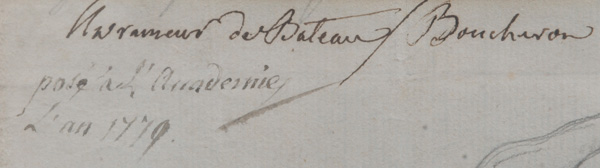 Un rameur de Bateau / Boucheron
posé à L'Academie
L'an 1779.